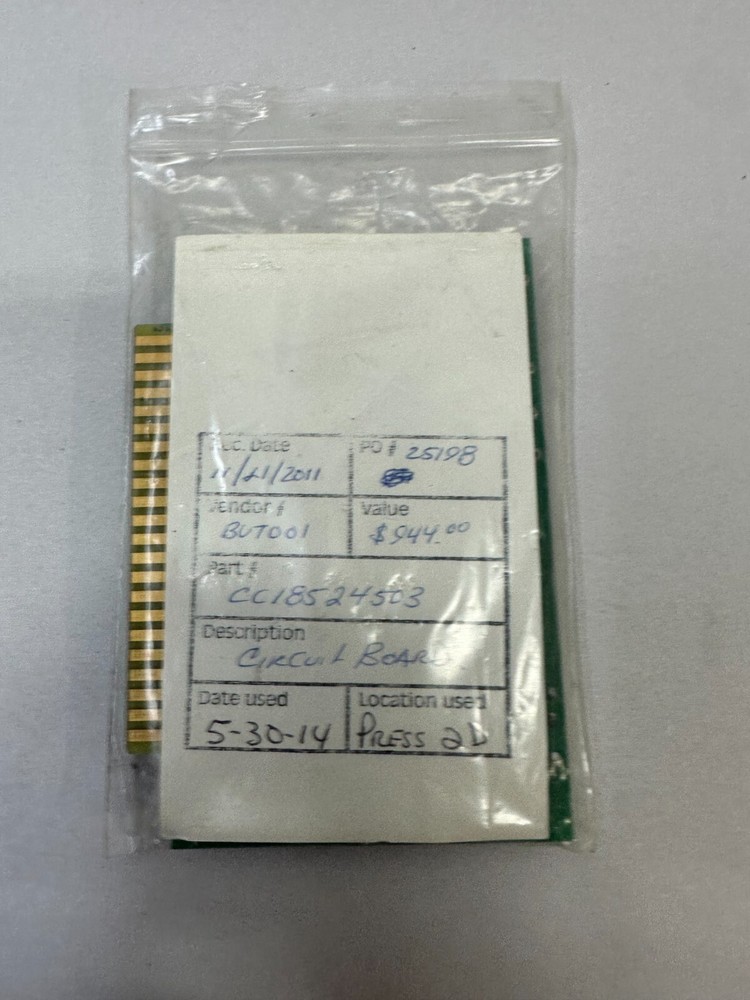 Date PO # 25198
11/21/2011
Vendor # Value
BUT001 $944.00
Part #
CC18524503
Description
CIRCUIT BOARD
Date used Location used
5-30-14 PRESS 2D